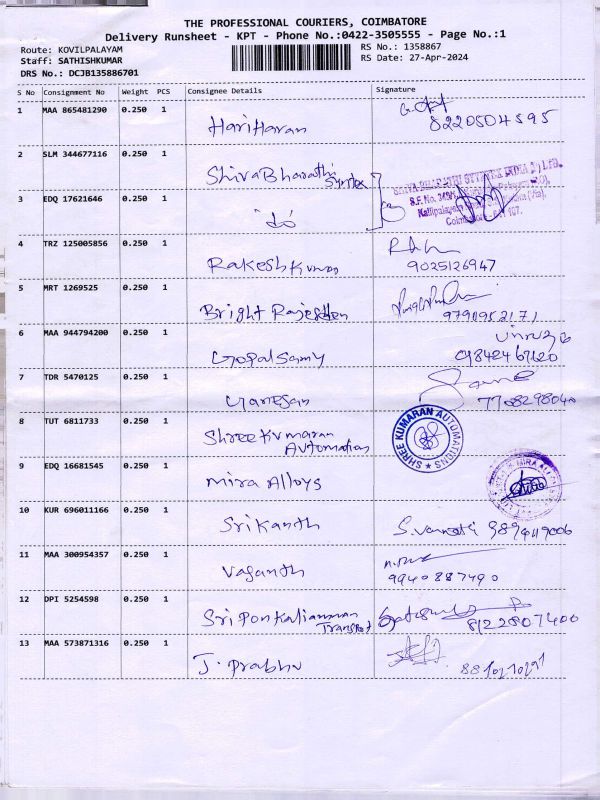 THE PROFESSIONAL COURIERS, COIMBATORE
Delivery Runsheet - KPT - Phone No.:0422-3505555 - Page No.:1
Route: KOVILPALAYAM
RS No.: 1358867
Staff: SATHISHKUMAR
RS Date: 27-Apr-2024
DRS No.: DCJB135886701
S No Consignment No Weight PCS Consignee Details Signature
1 MAA 865481290 0.250 1 HariHaran 8220504595
2 SLM 344677116 0.250 1 ShivaBharathi Syntex
3 EDQ 17621646 0.250 1 do
4 TRZ 125005856 0.250 1 Rakeshkumar 9025126947
5 MRT 1269525 0.250 1 Bright Rajesthen 9790952171
6 MAA 944794200 0.250 1 Gopalsamy 9842467120
7 TDR 5470125 0.250 1 Ganesan 7708298040
8 TUT 6811733 0.250 1 Shree Kumaran Automation
SHREE KUMARAN AUTOMATIONS
9 EDQ 16681545 0.250 1 Mira Alloys
10 KUR 696011166 0.250 1 Srikanth
11 MAA 300954357 0.250 1 Vasanth 9940887490
12 DPI 5254598 0.250 1 Sri Ponkaliamman Transport 8122807400
13 MAA 573871316 0.250 1 J. Prabhu